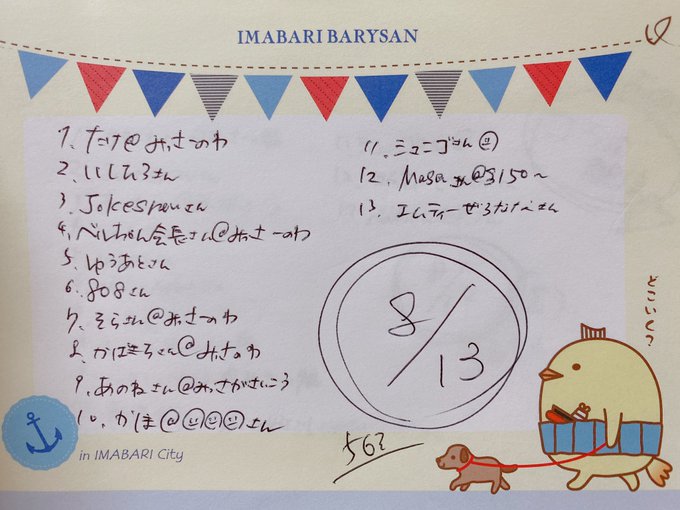 IMABARI BARYSAN
1、たけ@みっさーのわ
2、いしひろさん
3、Jokespouさん
4、べルちゃん会長さん@みっさーのわ
5、ゆうあとさん
6、808さん
7、そらさん@みっさーのわ
8、かぼきちさん@みっさのわ
9、あのねさん@みっさがさいころ
10、かほ@☺☺☺さん
11、ミュニゴさん☺
12、Masaさん@3150~
13、エムティーぜろなたさん
8/13
どこいく?
in IMABARI City